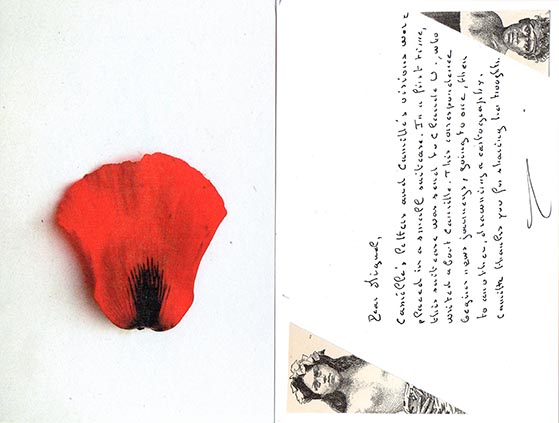 Dear Miguel,
Camille's letters and Camille's visions were
placed in a small suitcase. In a first time,
this suitcase was send to Claude U., who
writed about Camille. This correspondence
begins news journeys, going to one, then
to another, drawning a cartography.
Camille thanks you for sharing her trough.